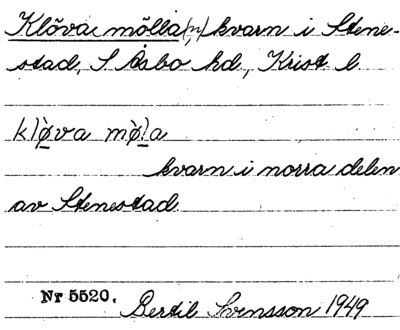 Klöva mölla(n) kvarn i Stene-
stad, S Åsbo hd, Krist. l.
klø̀va mø̀la
kvarn i norra delen
av Stenestad.
Nr 5520. Bertil Svensson 1949